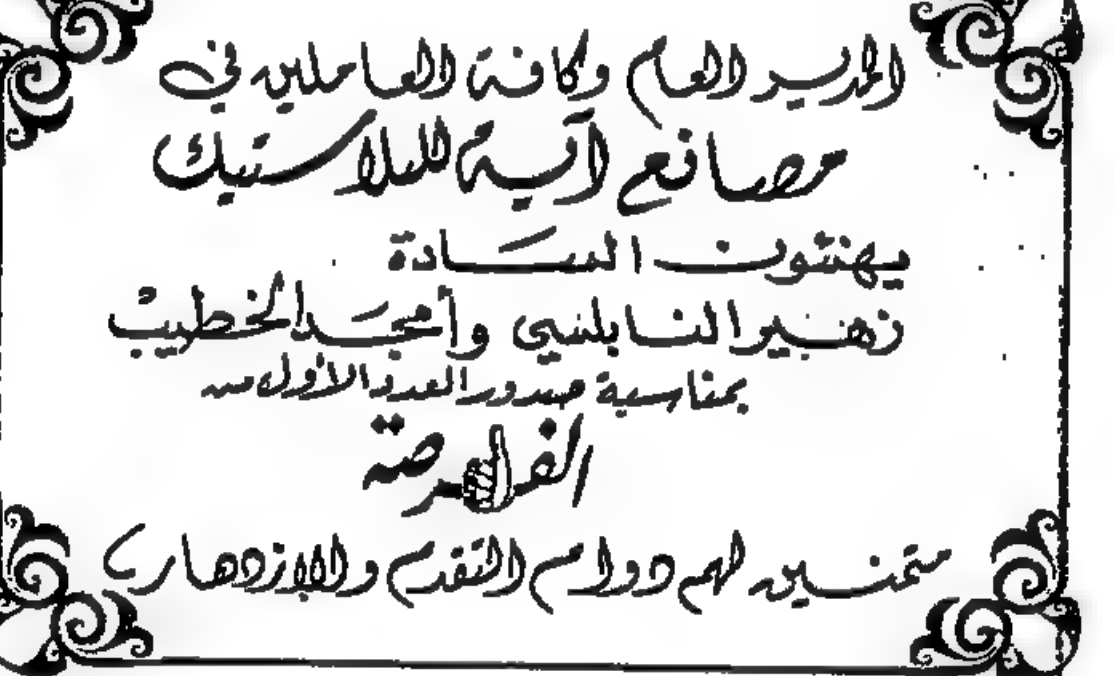 المدير العام وكافة العاملين في
مصانع آسية للبلاستيك
يهنئون السادة
زهير النابلسي وأمجد الخطيب
بمناسبة صدور العدد الأول من
الفرصة
متمنين لهم دوام التقدم والازدهار